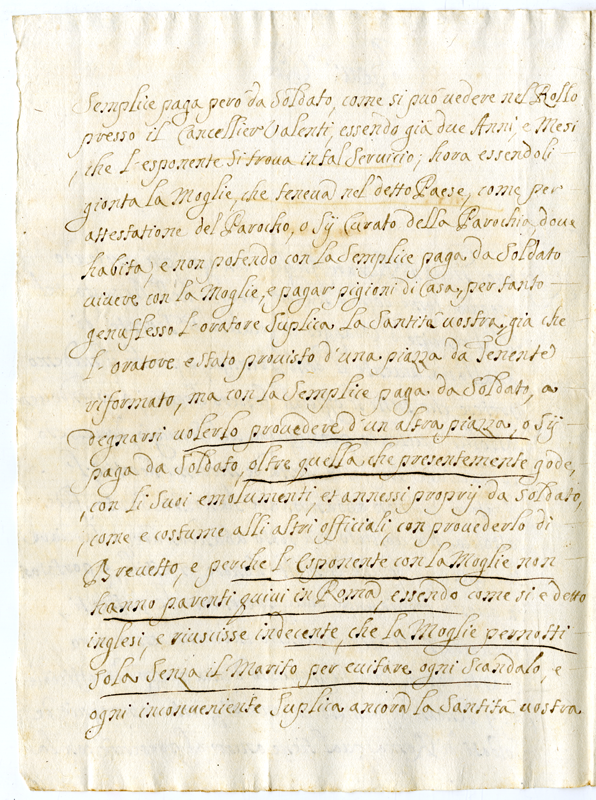 Semplice paga però da Soldato, come si può vedere nel Rollo
presso il Cancellier Valenti, essendo già due Anni, e Mesi
, che l'esponente si trova in tal Servicio; hora essendoli
gionta la Moglie, che teneva nel detto Paese, come per
attestatione del Parocho, o sÿ Curato della Parochia, dove
habita, e non potendo con la Semplice paga da Soldato
vivere con la Moglie, e pagar pigioni di Casa, per tanto
genuflesso l'oratore Suplica la Santità vostra, già che
l'oratore e stato provisto d'una piazza da Tenente
riformato, ma con la Semplice paga da Soldato, a
degnarsi volerlo provedere d'un altra piazza, o sÿ
paga da Soldato, oltre quella che presentemente gode,
, con li Suoi emolumenti, et annessi proprÿ da Soldato,
, come e costume alli altri officiali, con provederlo di
Brevetto, e perche l'Esponente con la Moglie non
hanno parenti quivi in Roma, essendo come si e detto
inglesi, e riuscisse indecente, che la Moglie pernotti
Sola Senza il Marito per evitare ogni Scandalo, e
ogni inconveniente Suplica ancora la Santità vostra